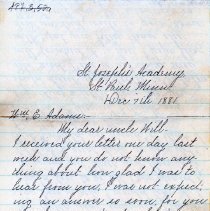 St Josephs Academy
St Paul Minn
Dec 7th 1881.
Wm E Adams:-
My dear uncle Will.
I received your letter me day last
week and you do not know any-
thing about how glad I was to
hear from you, I was not expect-
ing an answer so soon, for you